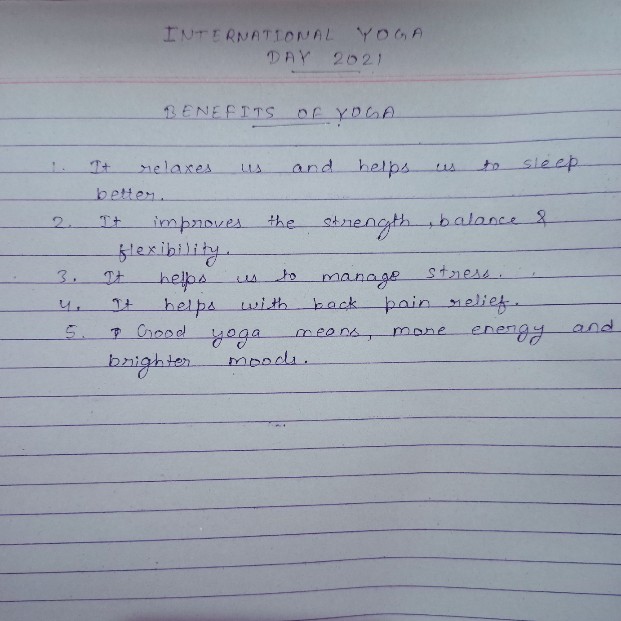 INTERNATIONAL YOGA
DAY 2021
BENEFITS OF YOGA
1. It relaxes us and helps us to sleep
better.
2. It improves the strength, balance &
flexibility.
3. It helps us to manage stress.
4. It helps with back pain relief.
5. Good yoga means, more energy and
brighter moods.